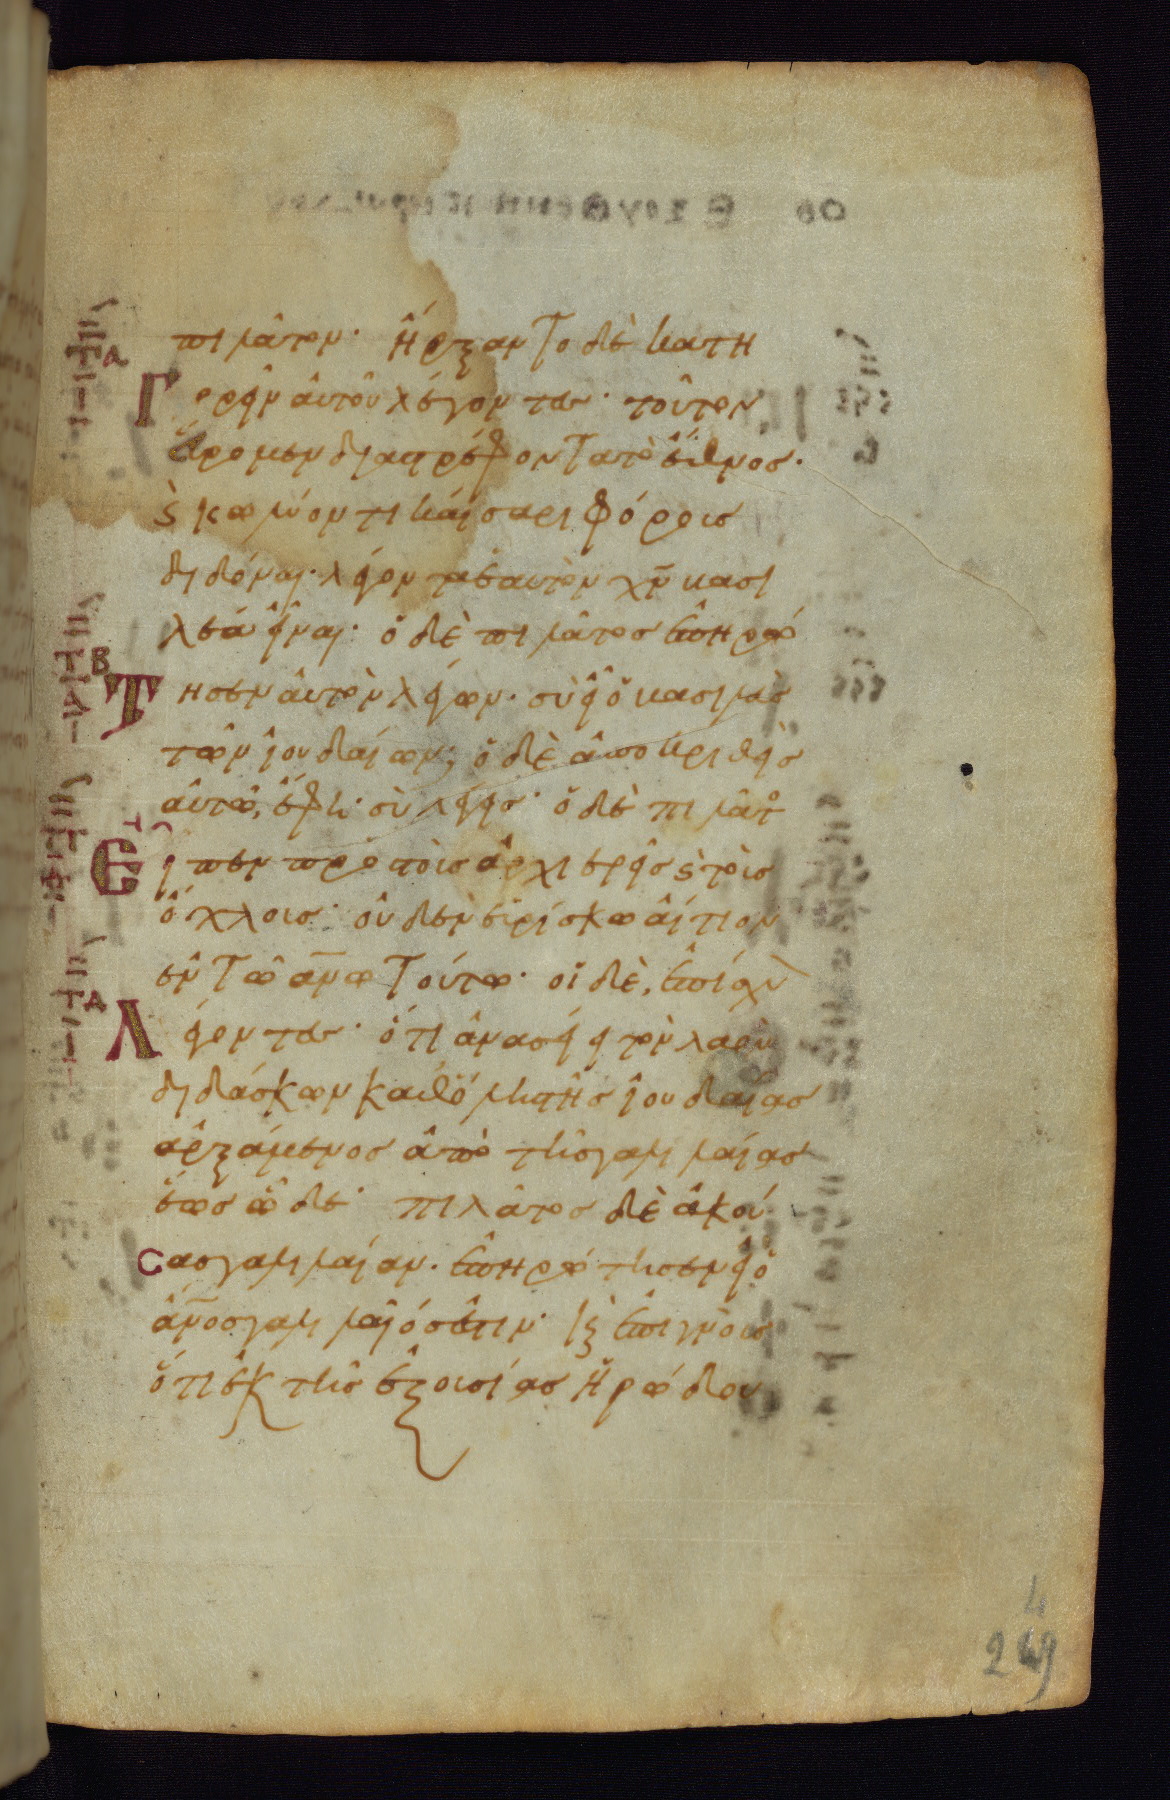 πιλάτον· ἤρξαντο δὲ κατη
Γορεῖν αὐτοῦ λέγοντες· τοῦτον
εὕρομεν διαστρέφοντα τὸ ἔθνος·
ϗ κωλύοντι καίσαρι φόρους
διδόναι· λέγοντα ἑαυτὸν χν βασι
λέα εἶναι· ὁ δὲ πιλάτος ἐπηρώ
Τησεν αὐτὸν λέγων· σὺ εἶ ὁ βασιλεὺς
τῶν ἰουδαίων; ὁ δὲ ἀποκριθεὶς
αὐτῶ, ἔφη· σὺ λέγεις· ὁ δὲ πιλάτο
Εἶπεν πρὸς τοὺς ἀρχιερεῖς ϗ τοὺς
ὄχλους· οὐδὲν εὑρίσκω αἴτιον
ἐν τῶ ανω τούτω· οἱ δὲ, ἐπίσχυ
Λέγοντες· ὅτι ἀνασείει τὸν λαὸν
διδάσκων καθόλης τῆς ἰουδαίας
ἀρξάμενος ἀπὸ τῆς γαλιλαίας
ἕως ὧδε· πιλάτος δὲ ἀκού
Σας γαλιλαίαν· ἐπηρώτησεν εἰ ὁ
ανος γαλιλαῖός ἐστιν· ϗ ἐπιγνοὺς
ὅτι ἐκ τῆς ἐξουσίας ἡρώδου
4
249